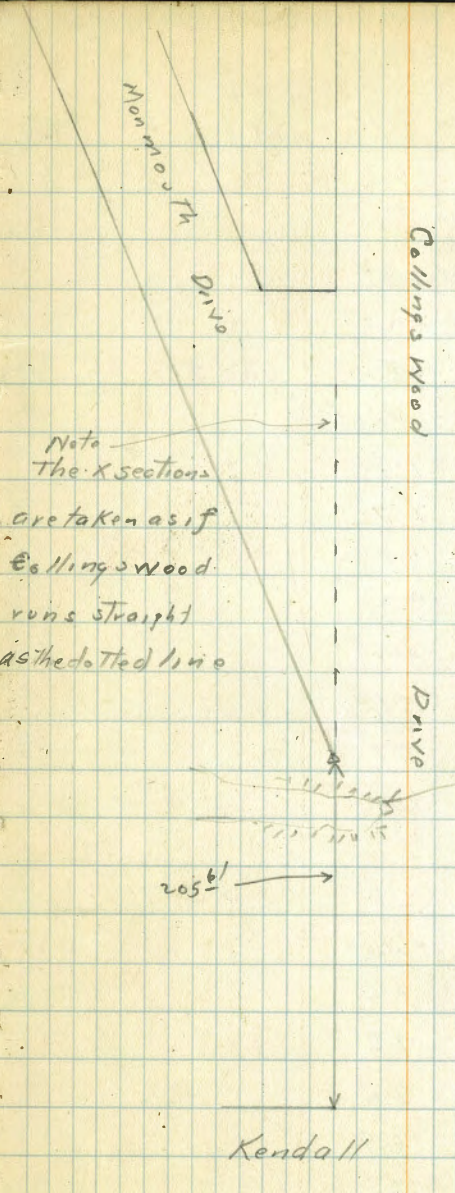 Monmouth
Drive
Collingswood
Drive
Note
The X sections
are taken as if
Collingswood
runs straight
as the dotted line
205 61
Kendall